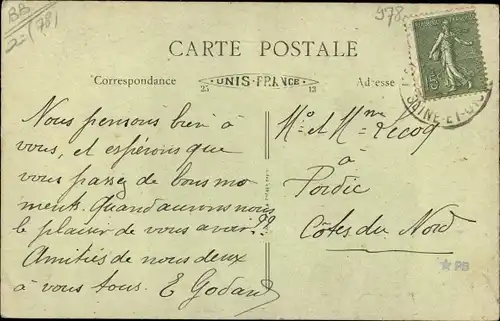 BB
(78)
978
CARTE POSTALE
Correspondance
UNIS-FRANCE
25
13
Adresse
15
SEINE-ET-OISE
Nous pensons bien à
vous, et espérons que
vous passez de bons mo
ments. Quand aurons nous
le plaisir de vous avoir??
Amitiés de nous deux
à vous tous. E Godard
Mr et Mme Lecoq
à
Pordic
Côtes du Nord
PB